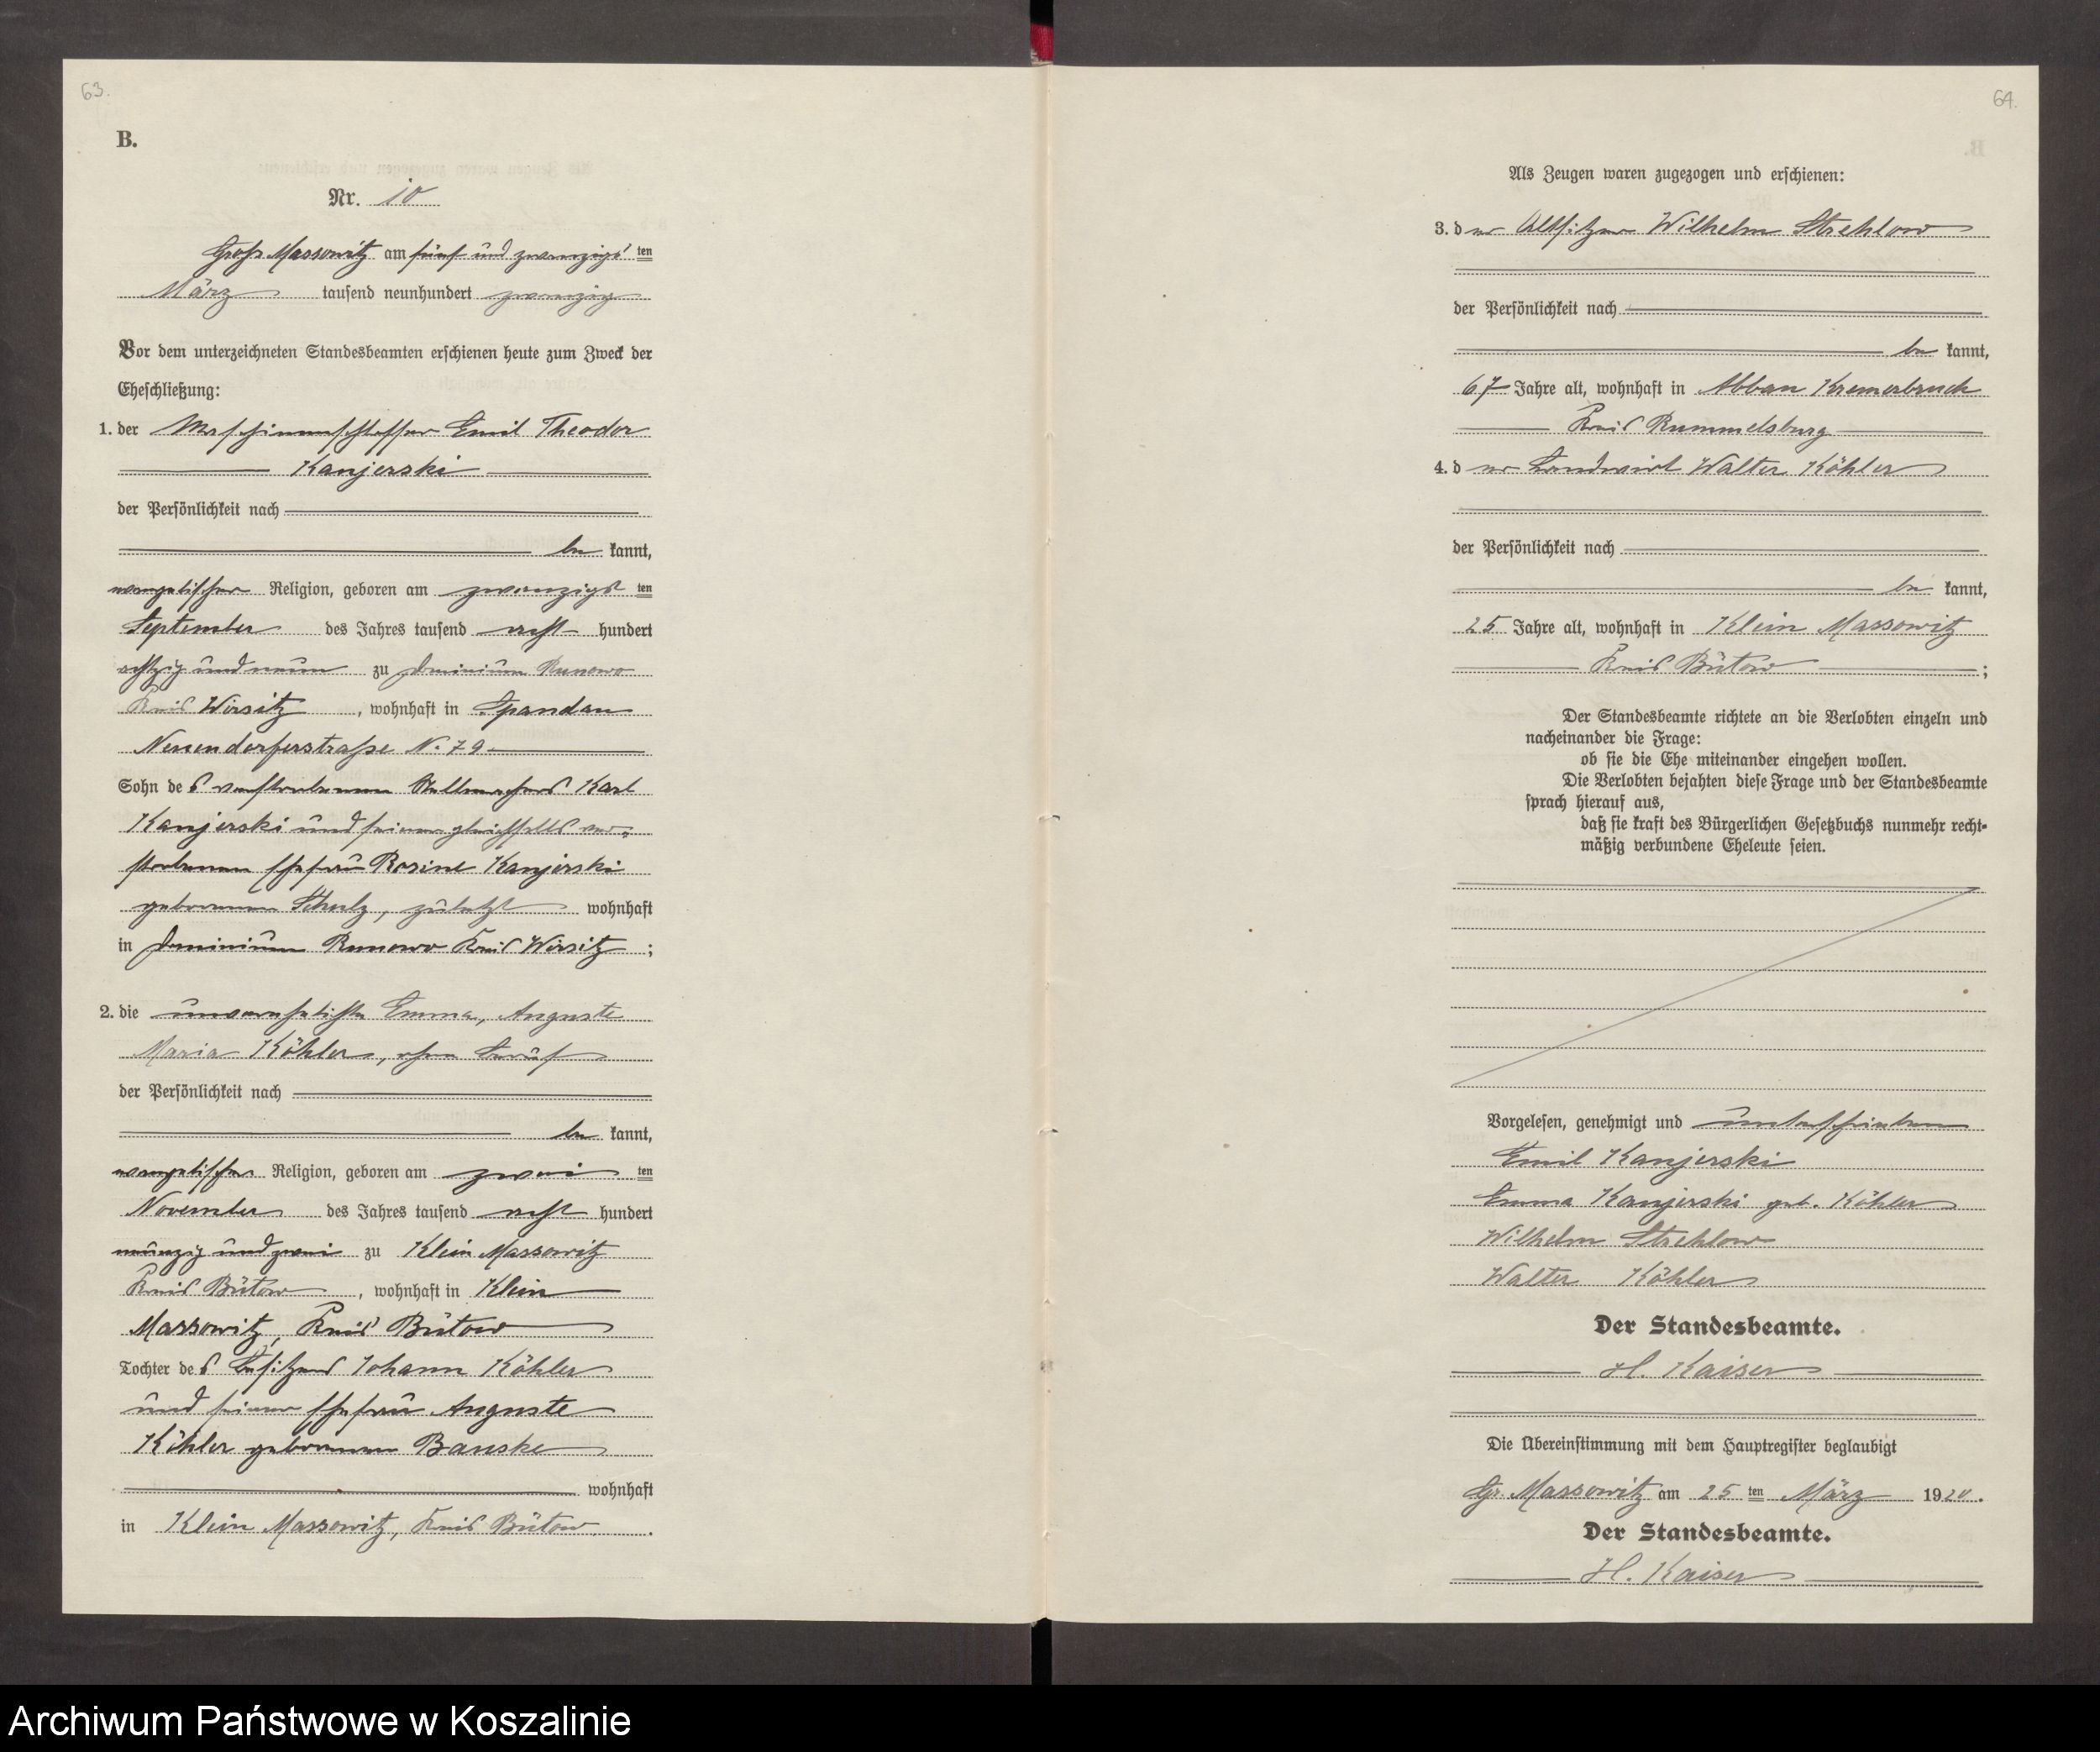 63.
B.
Nr. 10
Groß Massowitz am fünf und zwanzigs ten
März tausend neunhundert zwanzig
Vor dem unterzeichneten Standesbeamten erschienen heute zum Zweck der
Eheschließung:
1. der Maschinenschlosser Emil Theodor
Kanjerski
der Persönlichkeit nach
be kannt,
evangelischer Religion, geboren am zwanzigst ten
September des Jahres tausend acht hundert
achtzig und neun zu Dominium Runowo
Kreis Wirsitz, wohnhaft in Spandau
Neuendorferstraße N. 79
Sohn des verstorbenen Stellmachers Karl
Kanjerski und seiner gleichfalls ver-
storbenen Ehefrau Rosine Kanjerski
geborenen Schulz, zuletzt wohnhaft
in Dominium Runowo Kreis Wirsitz;
2. die unverehelichte Emma, Auguste
Maria Köhler, ohne Beruf
der Persönlichkeit nach
be kannt,
evangelischer Religion, geboren am zwei ten
November des Jahres tausend acht hundert
neunzig und zwei zu Klein Massowitz
Kreis Bütow, wohnhaft in Klein
Massowitz, Kreis Bütow
Tochter des Besitzers Johann Köhler
und seiner Ehefrau Auguste
Köhler geborenen Banske
wohnhaft
in Klein Massowitz, Kreis Bütow.
64.
Als Zeugen waren zugezogen und erschienen:
3. der Altsitzer Wilhelm Strehlow
der Persönlichkeit nach
be kannt,
67 Jahre alt, wohnhaft in Abbau Kremerbruch
Kreis Rummelsburg
4. der Landwirt Walter Köhler
der Persönlichkeit nach
be kannt,
25 Jahre alt, wohnhaft in Klein Massowitz
Kreis Bütow;
Der Standesbeamte richtete an die Verlobten einzeln und
nacheinander die Frage:
ob sie die Ehe miteinander eingehen wollen.
Die Verlobten bejahten diese Frage und der Standesbeamte
sprach hierauf aus,
daß sie kraft des Bürgerlichen Gesetzbuchs nunmehr recht-
mäßig verbundene Eheleute seien.
Vorgelesen, genehmigt und unterschrieben
Emil Kanjerski
Emma Kanjerski geb. Köhler
Wilhelm Strehlow
Walter Köhler
Der Standesbeamte.
H. Kaiser
Die Übereinstimmung mit dem Hauptregister beglaubigt
Gr. Massowitz am 25 ten März 1920.
Der Standesbeamte.
H. Kaiser
Archiwum Państwowe w Koszalinie